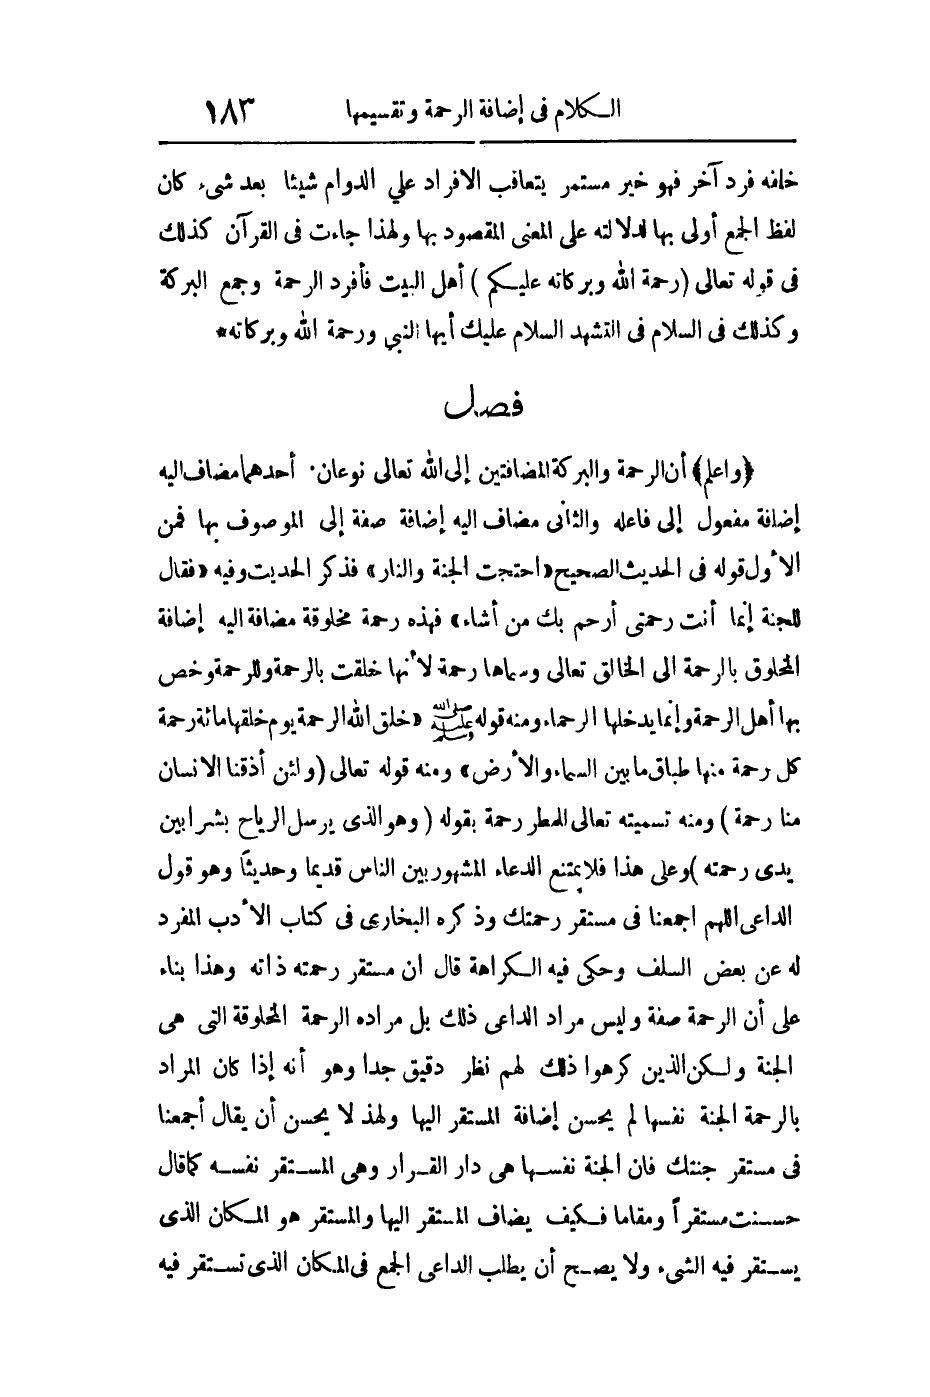 الكلام فى إضافة الرحمة وتقسيمها ١٨٣
خلفه فرد آخر فهو خير مستمر يتعاقب الافراد علي الدوام شيئا بعد شىء كان
لفظ الجمع أولى بها لدلالته على المعنى المقصود بها ولهذا جاءت فى القرآن كذلك
فى قوله تعالى (رحمة الله وبركاته عليكم) أهل البيت فأفرد الرحمة وجمع البركة
وكذلك فى السلام فى التشهد السلام عليك أيها النبي ورحمة الله وبركاته*
فصل
﴿واعلم﴾ أن الرحمة والبركة المضافتين إلى الله تعالى نوعان. أحدهما مضاف اليه
إضافة مفعول إلى فاعله والثانى مضاف اليه إضافة صفة إلى الموصوف بها فمن
الأول قوله فى الحديث الصحيح «احتجت الجنة والنار» فذكر الحديث وفيه «فقال
للجنة إنما أنت رحمتى أرحم بك من أشاء» فهذه رحمة مخلوقة مضافة اليه إضافة
المخلوق بالرحمة الى الخالق تعالى وسماها رحمة لأنها خلقت بالرحمة وللرحمة وخص
بها أهل الرحمة وإنما يدخلها الرحماء ومنه قوله ﷺ «خلق الله الرحمة يوم خلقها مائة رحمة
كل رحمة منها طباق ما بين السماء والأرض» ومنه قوله تعالى (ولئن أذقنا الانسان
منا رحمة) ومنه تسميته تعالى للمطر رحمة بقوله (وهو الذى يرسل الرياح بشرا بين
يدى رحمته) وعلى هذا فلا يمتنع الدعاء المشهور بين الناس قديما وحديثًا وهو قول
الداعى اللهم اجمعنا فى مستقر رحمتك وذكره البخارى فى كتاب الأدب المفرد
له عن بعض السلف وحكى فيه الكراهة قال ان مستقر رحمته ذاته وهذا بناء
على أن الرحمة صفة وليس مراد الداعى ذلك بل مراده الرحمة المخلوقة التى هى
الجنة ولكن الذين كرهوا ذلك لهم نظر دقيق جدا وهو أنه إذا كان المراد
بالرحمة الجنة نفسها لم يحسن إضافة المستقر اليها ولهذ لا يحسن أن يقال أجمعنا
فى مستقر جنتك فان الجنة نفسها هى دار القرار وهى المستقر نفسه كما قال
حسنت مستقراً ومقاما فكيف يضاف المستقر اليها والمستقر هو المكان الذى
يستقر فيه الشىء ولا يصح أن يطلب الداعى الجمع فى المكان الذى تستقر فيه